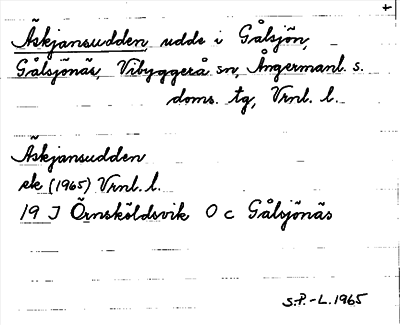 +
Äskjansudden, udde i Gålsjön,
Gålsjönäs, Vibyggerå sn, Ångermanl. s.
doms. tg, Vrnl. l.
Äskjansudden
ek (1965) Vrnl. l.
19 J Örnsköldsvik 0 c Gålsjönäs
S.P.-L. 1965